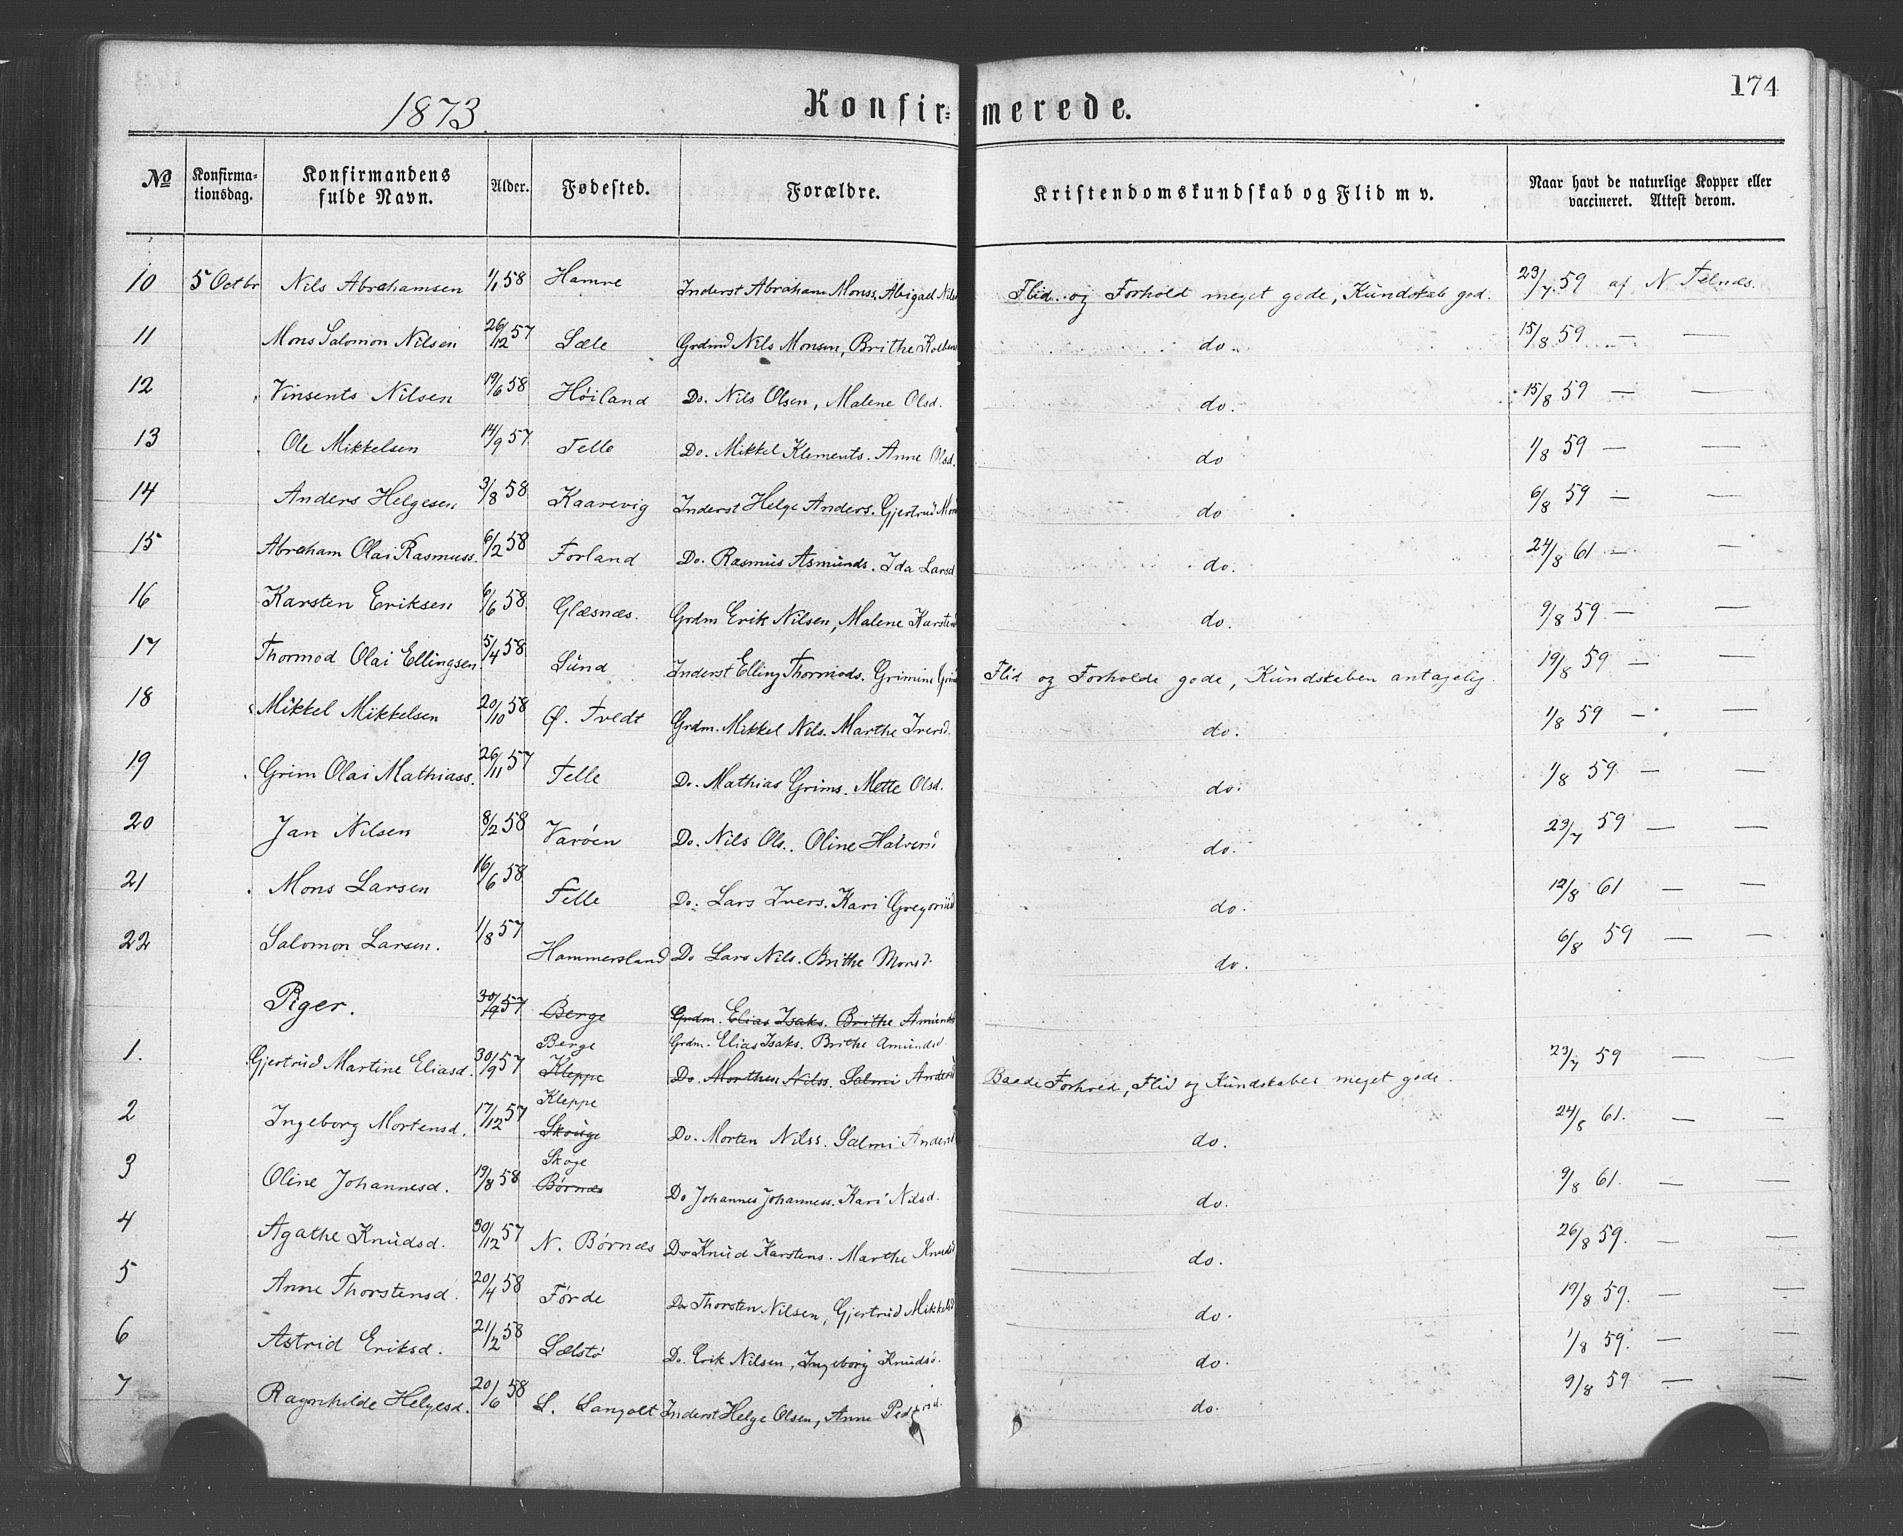 174
1873.
Konfir= merede.
No Konfirma-tionsdag. Konfirmandens fulde Navn. Alder. Fødested. Forældre. Kristendomskundskab og Flid m v. Naar havt de naturlige Kopper eller vaccineret. Attest derom.
10 5 Octbr Nils Abrahamsen 1/1 58 Hamre Inderst Abraham Monss, Abigael Nils Flid og Forhold meget gode, Kundskab god. 23/7 59 af N
11 Mons Salomon Nilsen 26/12 57 Sæle Grdmd Nils Monsen, Brithe do. 15/8 59 — —
12 Vinsents Nilsen 19/6 58 Høiland Do. Nils Olsen, Malene Olsd. do. 15/8 59 — —
13 Ole Mikkelsen 14/9 57 Telle Do. Mikkel Klements. Anne Olsd. do 1/8 59 — —
14 Anders Helgesen 3/8 58 Kaarevig Inderst Helge Anders. Gjertrud Mons do 6/8 59 — —
15 Abraham Olai Rasmuss. 6/2 58 Forland Do. Rasmus Asmunds. Ida Larsd do. 24/8 61 — —
16 Karsten Eriksen 6/6 58 Glæsnæs. Grdm Erik Nilsen, Malene Karsten do. 9/8 59 — —
17 Thormod Olai Ellingsen 5/4 58 Sund Inderst Elling Thormods. Grimine Flid og Forholde gode, Kundskaben antagelig. 19/8 59 — —
18 Mikkel Mikkelsen 20/10 58 Ø. Tvedt Grdm. Mikkel Nils. Marthe Iversd. do. 1/8 59 — —
19 Grim Olai Mathiass. 26/11 57 Telle Do. Mathias Grims. Mette Olsd. do. 1/8 59 — —
20 Jan Nilsen 8/2 58 Varøen Do. Nils Ols. Oline Halversd do. 23/7 59 — —
21 Mons Larsen 16/6 58 Telle Do. Lars Ivers. Kari do. 12/8 61 — —
22 Salomon Larsen. 1/8 57 Hammersland Do Lars Nils. Brithe Monsd. do. 6/8 59 — —
Piger. 30/9 57 Berge Grdm. Elias Isaks. Brithe Amunds
Berge Grdm. Elias Isaks. Brithe Amundsd
1. Gjertrud Martine Eliasd. 30/9 57 Kleppe Do. Morthen Nilss. Salmi Andersd Baade Forhold, Flid og Kundskaber meget gode. 23/7 59 — —
Kleppe
2 Ingeborg Mortensd. 17/12 57 Skouge Do. Morten Nilss. Salmi Andersd do. 24/8 61. — —
Skoge
3 Oline Johannesd. 19/8 58 Børnæs Do Johannes Johanness. Kari Nilsd. do. 9/8 61. — —
4 Agathe Knudsd. 30/12 57 N. Børnæs Do Knud Karstens. Marthe Knudsd do. 26/8 59. — —
5 Anne Thorstensd. 20/4 58 Førde Do Thorsten Nilsen, Gjertrud Mikkelsd do. 19/8 59. — —
6 Astrid Eriksd. 21/2 58 Sælstø Do. Erik Nilsen, Ingeborg Knudsd. do. 1/8 59. — —
7 Ragnhilde Helgesd. 20/6 58 L. Langolt Inderst Helge Olsen, Anne do. 9/8 59 — —